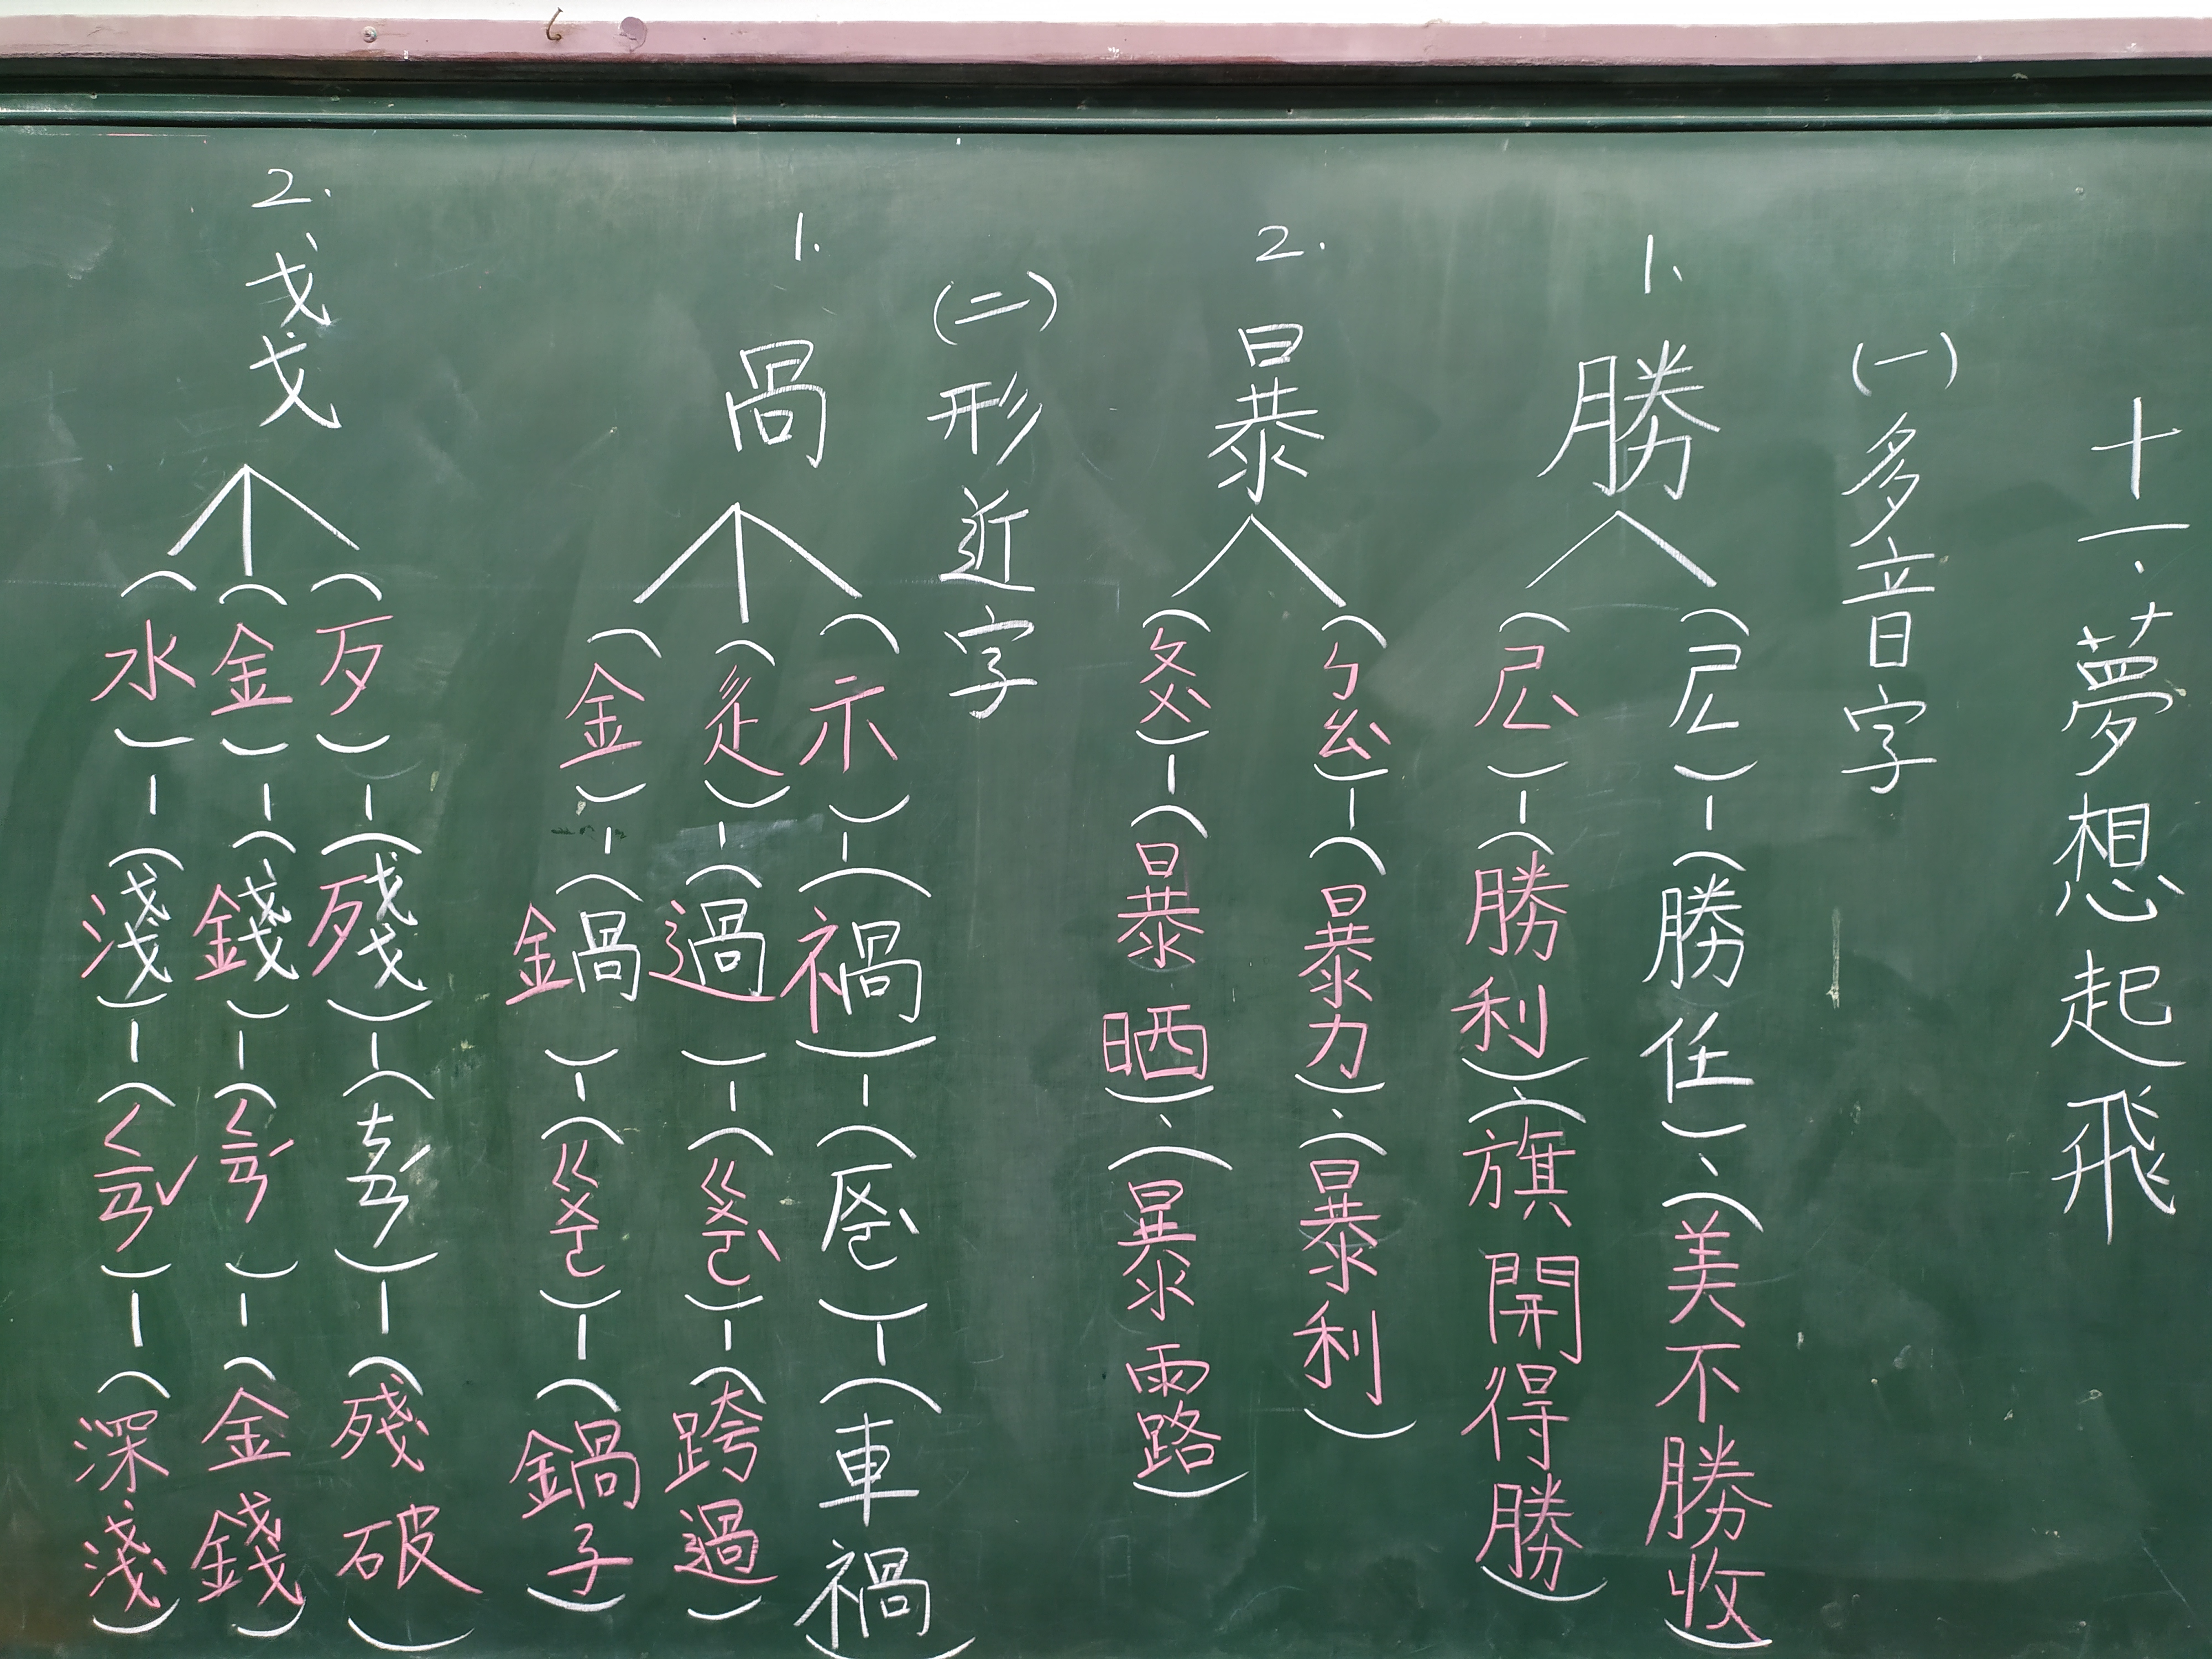 十一.夢想起飛
(一)多音字
1、勝
(ㄕㄥ)-(勝任)、(美不勝收)
(ㄕㄥˋ)-(勝利)、(旗開得勝)
2.暴
(ㄅㄠˋ)-(暴力)、(暴利)
(ㄆㄨˋ)-(暴晒)、(暴露)
(二)形近字
1.咼
(示)-(禍)-(ㄏㄨㄛˋ)-(車禍)
(辵)-(過)-(ㄍㄨㄛˋ)-(跨過)
(金)-(鍋)-(ㄍㄨㄛ)-(鍋子)
2.戔
(歹)-(殘)-(ㄘㄢˊ)-(殘破)
(金)-(錢)-(ㄑㄧㄢˊ)-(金錢)
(水)-(淺)-(ㄑㄧㄢˇ)-(深淺)